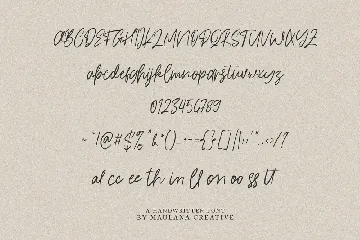 ABCDEFGHIJKLMNOPQRSTUVWXYZ
abcdefghijklmnopqrstuvwxyz
0123456789
al cc ee th in ll on oo ss tt
A HANDWRITTEN FONT
BY MAULANA CREATIVE